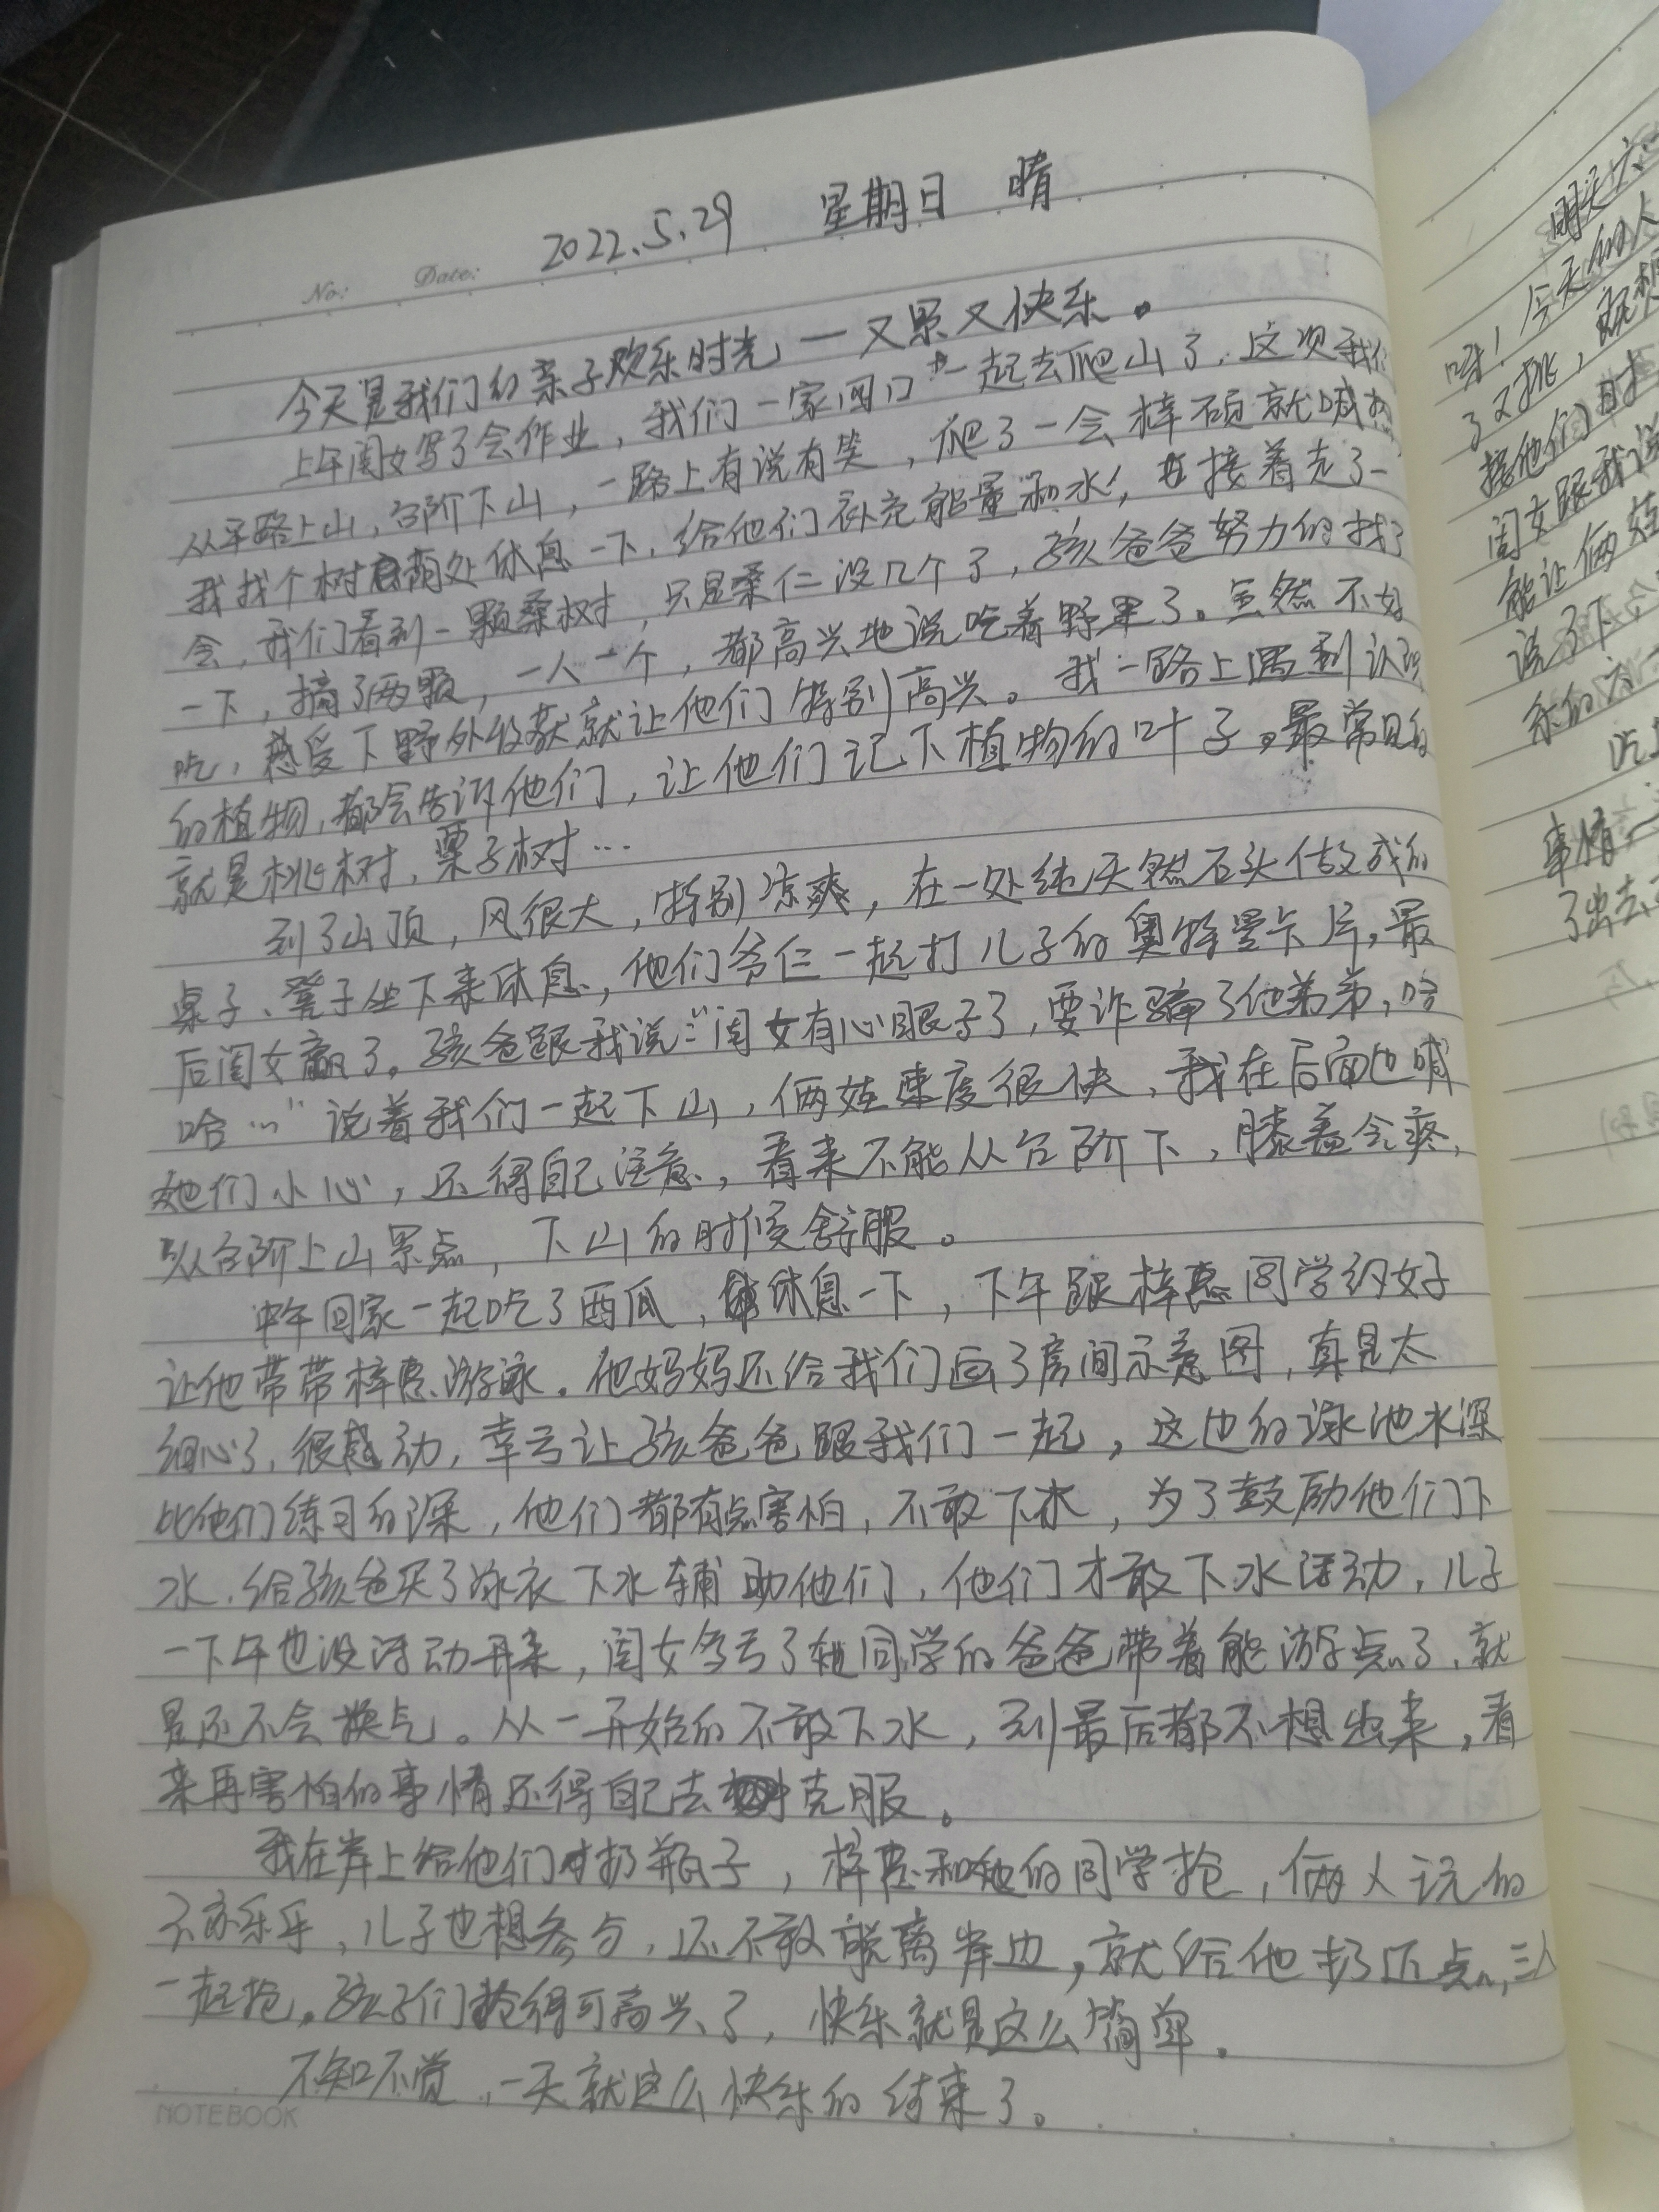 2022.5.29 星期日 晴
No: Date:
今天是我们的亲子欢乐时光,一又累又快乐。
上午闺女写了会作业,我们一家四口一起去爬山了,这次我们
从平路上山,台阶下山,一路上有说有笑,爬了一会梓硕就喊
我找个树荫处休息一下,给他们补充能量和水,接着走了一
会,我们看到一颗桑树,只是桑仁没几个了,孩爸爸努力的找了
一下,摘了两颗,一人一个,都高兴地说吃着野果了。虽然不好
吃,感受下野外收获就让他们特别高兴。我一路上遇到认识
的植物,都会告诉他们,让他们记下植物的叶子。最常见的
就是桃树,栗子树…
到了山顶,风很大,特别凉爽,在一处纯天然石头做成的
桌子、凳子坐下来休息,他们爷仨一起打儿子的奥特曼卡片,最
后闺女赢了。孩爸跟我说:“闺女有心眼子了,耍诈骗了他弟弟,哈
哈…”说着我们一起下山,俩娃速度很快,我在后面也喊
她们小心,还得自己注意,看来不能从台阶下,膝盖会疼,
从台阶上山累点,下山的时候舒服。
中午回家一起吃了西瓜,休息一下,下午跟梓惠同学约好
让他带带梓惠游泳。他妈妈还给我们画了房间示意图,真是太
细心了,很感动,幸亏让孩爸爸跟我们一起,这边的泳池水深
比他们练习的深,他们都有点害怕,不敢下水,为了鼓励他们下
水,给孩爸买了泳衣下水辅助他们,他们才敢下水活动,儿子
一下午也没活动开来,闺女多亏了她同学的爸爸带着能游点了,就
是还不会换气。从一开始的不敢下水,到最后都不想出来,看
来再害怕的事情还得自己去克服。
我在岸上给他们扔瓶子,梓惠和她的同学抢,俩人玩的
不亦乐乎,儿子也想参与,还不敢脱离岸边,就给他扔近点,三人
一起抢。孩子们抢得可高兴了,快乐就是这么简单。
不知不觉,一天就这么快乐的结束了。
NOTEBOOK
明天六
今天的人
了又挑,
接他们时
闺女跟我说
能让俩娃
说了下
吃
事情
了出去